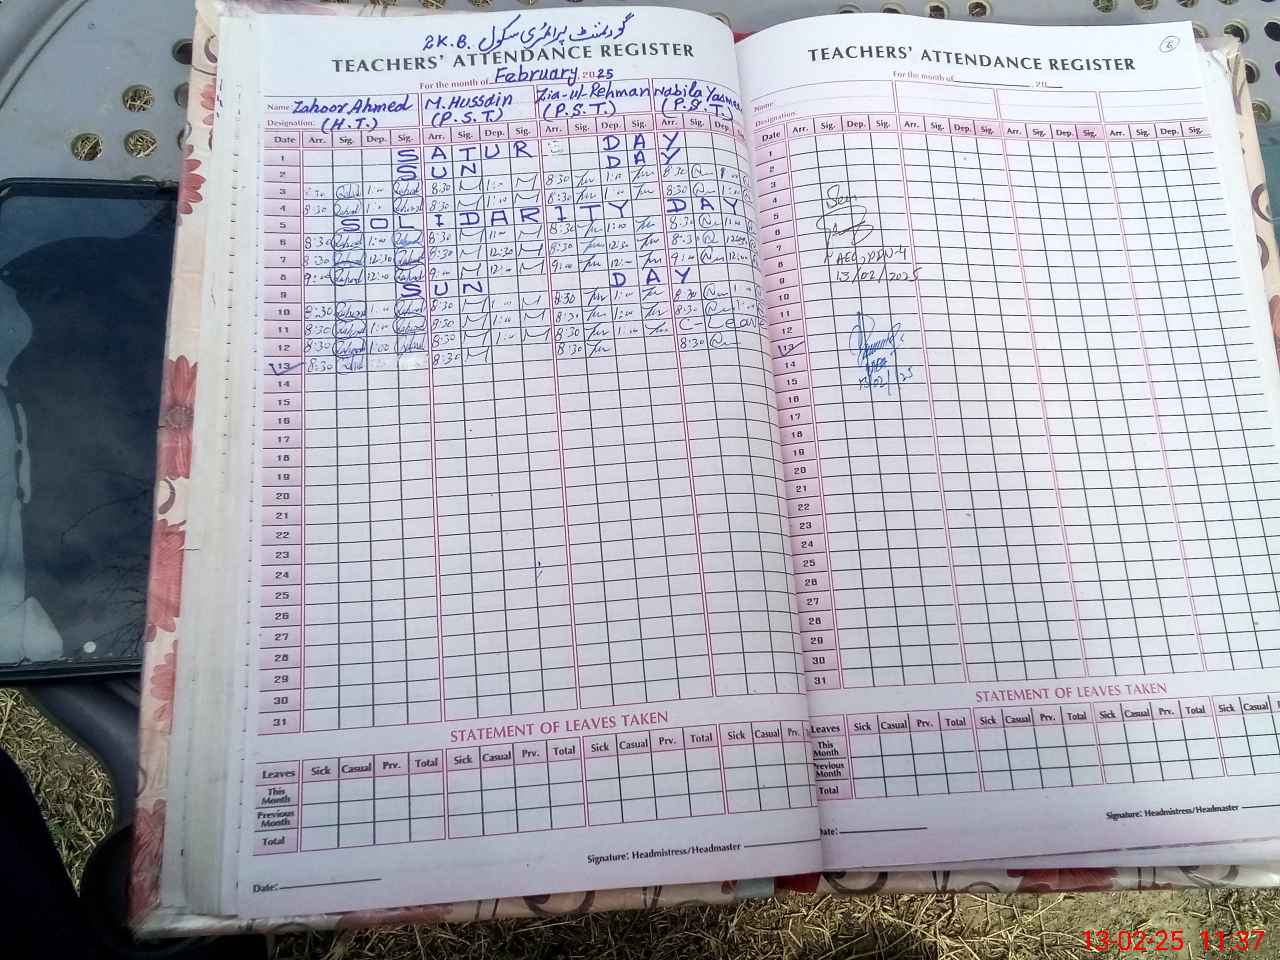 گورنمنٹ پرائمری سکول 2K.B.
TEACHERS' ATTENDANCE REGISTER
For the month of February 2025
Name: Zahoor Ahmed M. Hussain Zia-ul-Rehman Nabila Yasmeen
Designation: (H.T.) (P.S.T) (P.S.T.) (P.S.T.)
Date Arr. Sig. Dep. Sig. Arr. Sig. Dep. Sig. Arr. Sig. Dep. Sig. Arr. Sig. Dep. Sig.
1 SATUR DAY
2 SUN DAY
3 8:30 1:00 8:30 M 1:00 M 8:30 1:00 8:30
4 8:30 1:00 8:30 M 1:00 M 8:30 1:00 8:30 1:00
5 SOLIDARITY DAY
6 8:30 1:00 8:30 M 1:00 M 8:30 1:00 8:30 1:00
7 8:30 12:30 8:30 M 12:30 M 8:30 12:30 8:30 12:30
8 9:00 12:00 9:00 M 12:00 M 9:00 12:00 9:00 12:00
9 SUN DAY
10 8:30 1:00 8:30 M 1:00 M 8:30 1:00 8:30 1:00
11 8:30 1:00 8:30 M 1:00 M 8:30 1:00 8:30 1:00
12 8:30 1:00 8:30 M 1:00 M 8:30 1:00 C-Leave
13 8:30 8:30 M 8:30 8:30
14
15
16
17
18
19
20
21
22
23
24
25
26
27
28
29
30
31
STATEMENT OF LEAVES TAKEN
Leaves Sick Casual Prv. Total Sick Casual Prv. Total Sick Casual Prv. Total Sick Casual Prv.
This Month
Previous Month
Total
Signature: Headmistress/Headmaster
Date:
6
TEACHERS' ATTENDANCE REGISTER
For the month of 20
Name
Designation:
Date Arr. Sig. Dep. Sig. Arr. Sig. Dep. Sig. Arr. Sig. Dep. Sig. Arr. Sig. Dep. Sig.
1
2
3
4
5
6
7
8
9
10
11
12
13
14
15
16
17
18
19
20
21
22
23
24
25
26
27
28
29
30
31
Seen
13/02/2025
13/02/25
STATEMENT OF LEAVES TAKEN
Leaves Sick Casual Prv. Total Sick Casual Prv. Total Sick Casual Prv. Total Sick Casual
This Month
Previous Month
Total
Signature: Headmistress/Headmaster
Date:
13-02-25 11:37